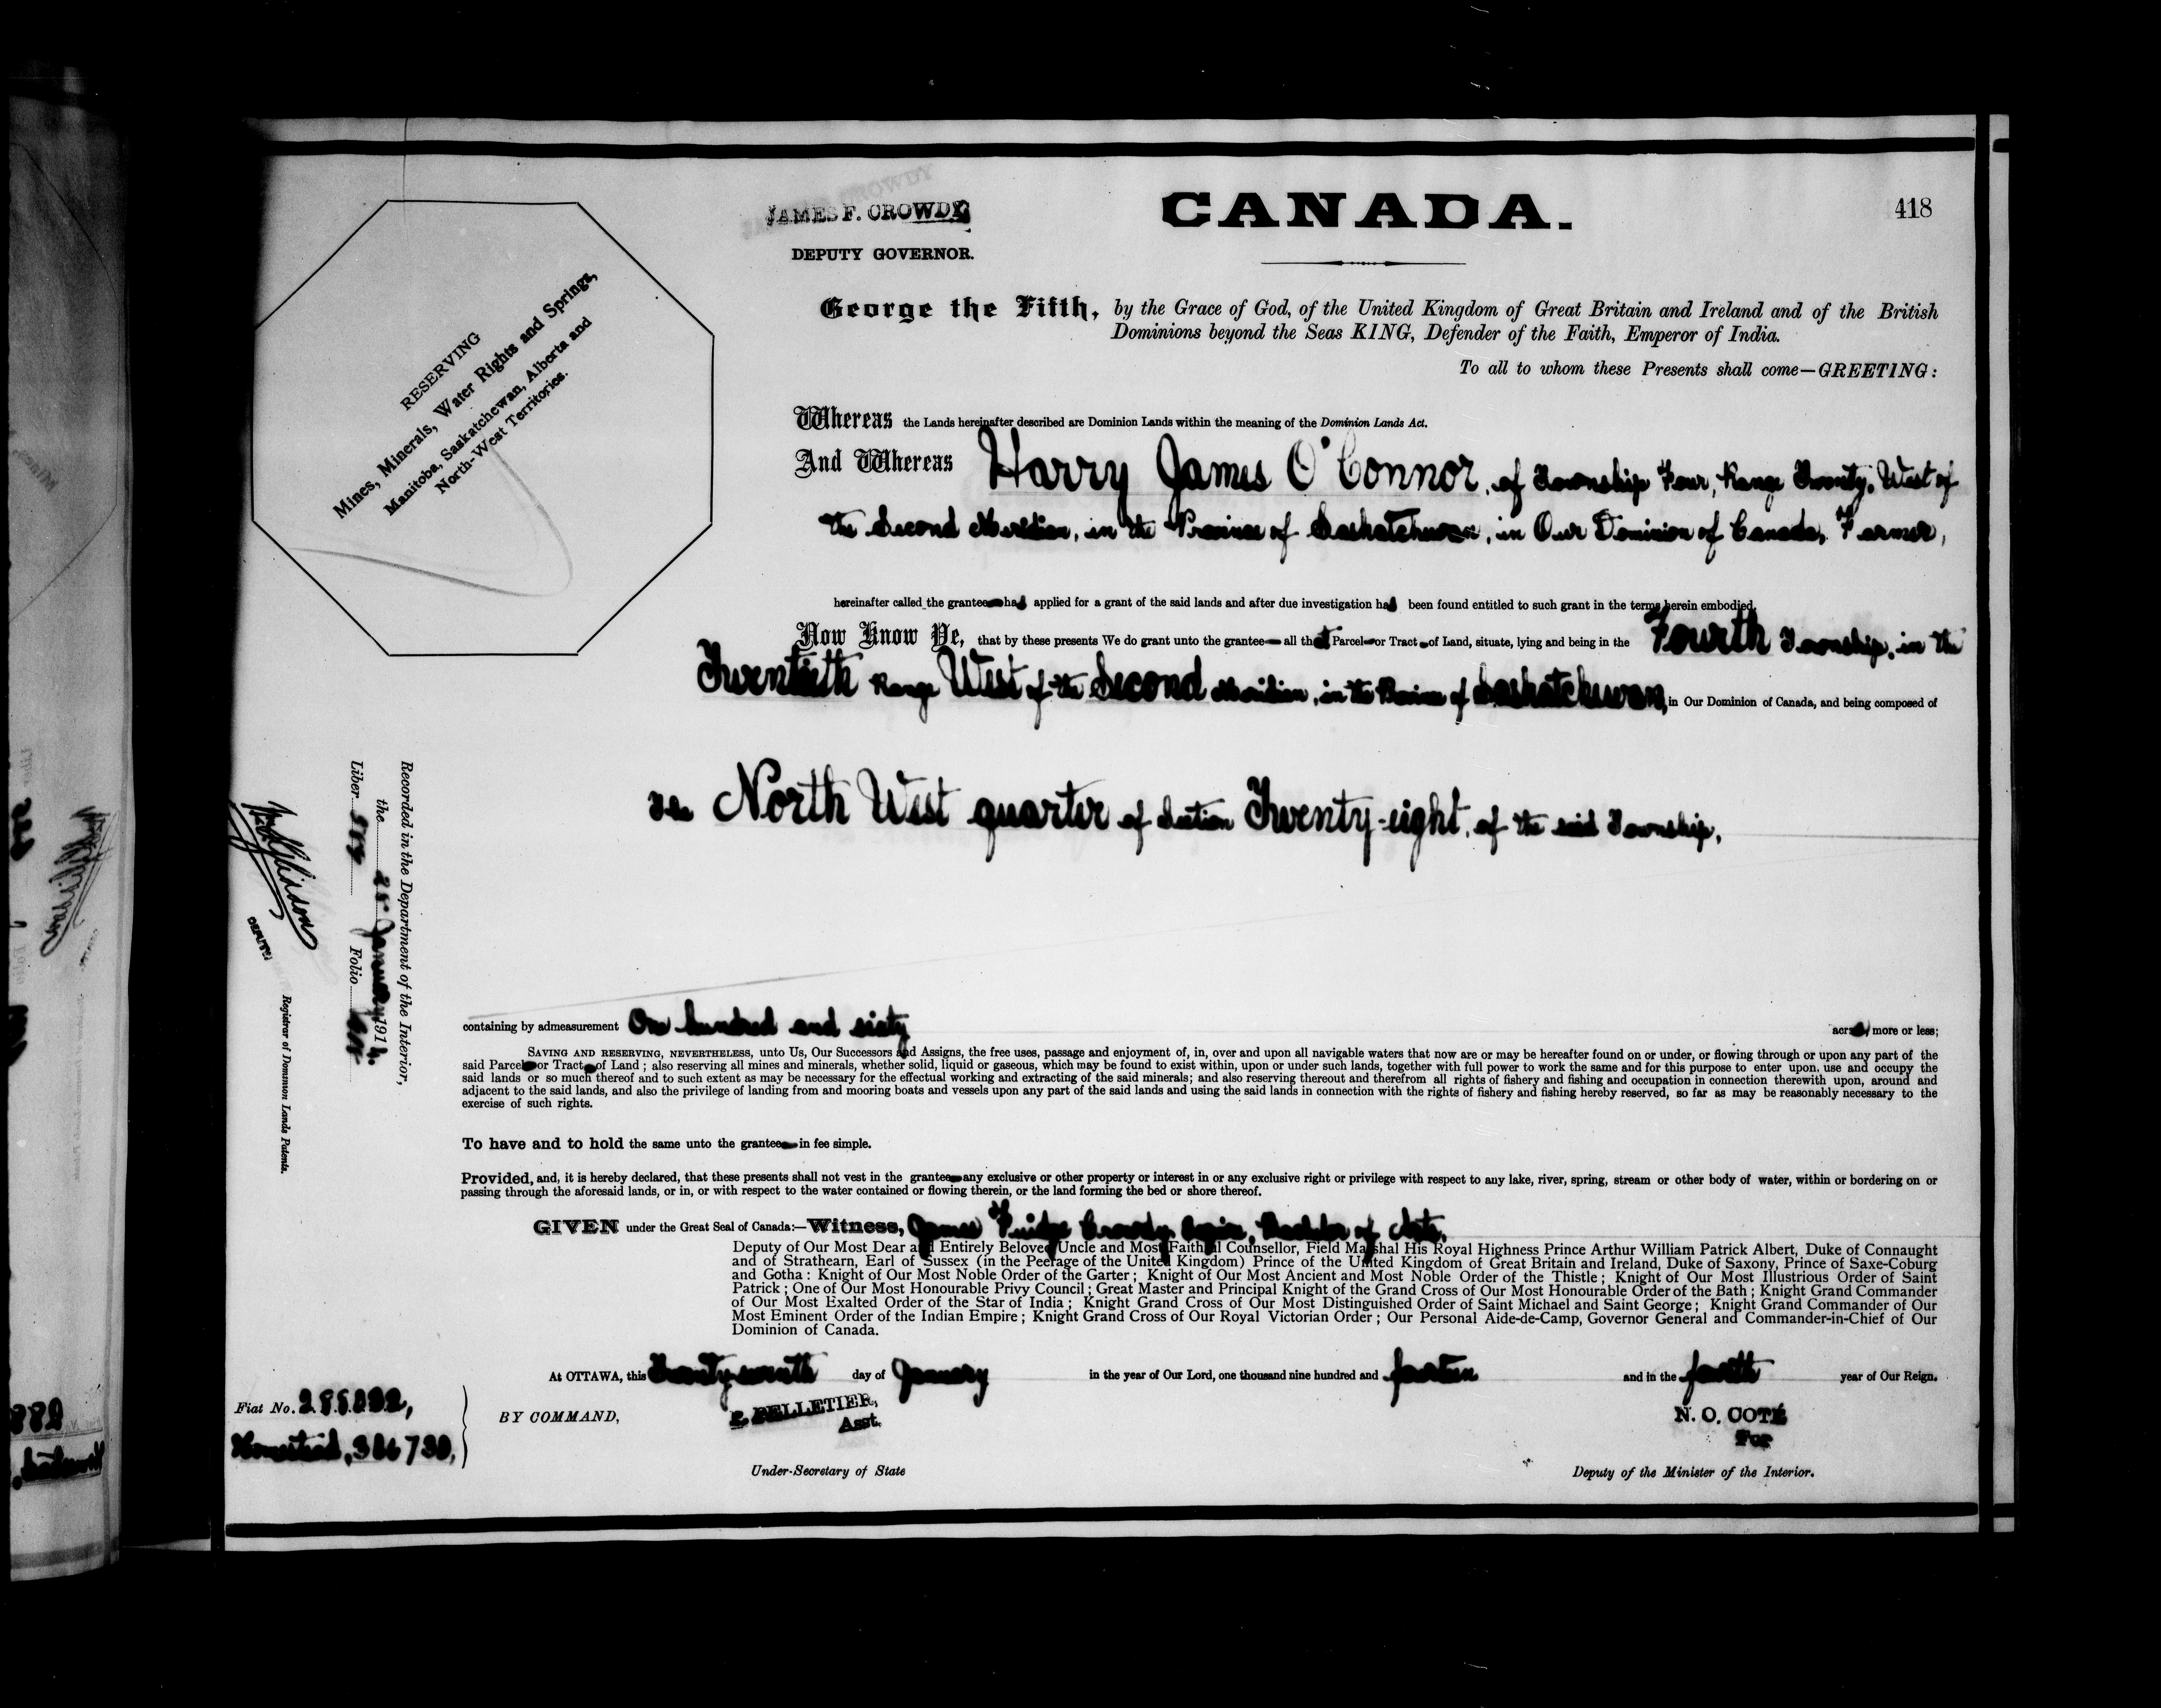 JAMES F. CROWDY
DEPUTY GOVERNOR.
CANADA.
418
RESERVING
Mines, Minerals, Water Rights and Springs,
Manitoba, Saskatchewan, Alberta and
North-West Territories.
George the Fifth, by the Grace of God, of the United Kingdom of Great Britain and Ireland and of the British
Dominions beyond the Seas KING, Defender of the Faith, Emperor of India.
To all to whom these Presents shall come—GREETING:
Whereas the Lands hereinafter described are Dominion Lands within the meaning of the Dominion Lands Act.
And Whereas Harry James O'Connor, of Township Four, Range Twenty, West of
the Second Meridian, in the Province of Saskatchewan, in Our Dominion of Canada, Farmer,
hereinafter called the grantee has applied for a grant of the said lands and after due investigation has been found entitled to such grant in the terms herein embodied.
Now Know Ye, that by these presents We do grant unto the grantee all that Parcel or Tract of Land, situate, lying and being in the Fourth Township, in the
Twentieth Range West of the Second Meridian, in the Province of Saskatchewan, in Our Dominion of Canada, and being composed of
The North West quarter of Section Twenty-eight, of the said Township,
containing by admeasurement One hundred and sixty acres, more or less;
SAVING AND RESERVING, NEVERTHELESS, unto Us, Our Successors and Assigns, the free uses, passage and enjoyment of, in, over and upon all navigable waters that now are or may be hereafter found on or under, or flowing through or upon any part of the
said Parcel or Tract of Land; also reserving all mines and minerals, whether solid, liquid or gaseous, which may be found to exist within, upon or under such lands, together with full power to work the same and for this purpose to enter upon, use and occupy the
said lands or so much thereof and to such extent as may be necessary for the effectual working and extracting of the said minerals; and also reserving thereout and therefrom all rights of fishery and fishing and occupation in connection therewith upon, around and
adjacent to the said lands, and also the privilege of landing from and mooring boats and vessels upon any part of the said lands and using the said lands in connection with the rights of fishery and fishing hereby reserved, so far as may be reasonably necessary to the
exercise of such rights.
To have and to hold the same unto the grantee in fee simple.
Provided, and, it is hereby declared, that these presents shall not vest in the grantee any exclusive or other property or interest in or any exclusive right or privilege with respect to any lake, river, spring, stream or other body of water, within or bordering on or
passing through the aforesaid lands, or in, or with respect to the water contained or flowing therein, or the land forming the bed or shore thereof.
GIVEN under the Great Seal of Canada:—Witness, James Fuidge Crowdy, Esquire, Bachelor of Arts,
Deputy of Our Most Dear and Entirely Beloved Uncle and Most Faithful Counsellor, Field Marshal His Royal Highness Prince Arthur William Patrick Albert, Duke of Connaught
and of Strathearn, Earl of Sussex (in the Peerage of the United Kingdom) Prince of the United Kingdom of Great Britain and Ireland, Duke of Saxony, Prince of Saxe-Coburg
and Gotha: Knight of Our Most Noble Order of the Garter; Knight of Our Most Ancient and Most Noble Order of the Thistle; Knight of Our Most Illustrious Order of Saint
Patrick; One of Our Most Honourable Privy Council; Great Master and Principal Knight of the Grand Cross of Our Most Honourable Order of the Bath; Knight Grand Commander
of Our Most Exalted Order of the Star of India; Knight Grand Cross of Our Most Distinguished Order of Saint Michael and Saint George; Knight Grand Commander of Our
Most Eminent Order of the Indian Empire; Knight Grand Cross of Our Royal Victorian Order; Our Personal Aide-de-Camp, Governor General and Commander-in-Chief of Our
Dominion of Canada.
At OTTAWA, this day of January in the year of Our Lord, one thousand nine hundred and fourteen and in the fourth year of Our Reign.
BY COMMAND,
P. PELLETIER,
Asst.
Under-Secretary of State
N. O. COTÉ
For
Deputy of the Minister of the Interior.
Fiat No. 
Homestead, 
Recorded in the Department of the Interior,
the January 1914.
Liber Folio
DEPUTY
Registrar of Dominion Lands Patents.